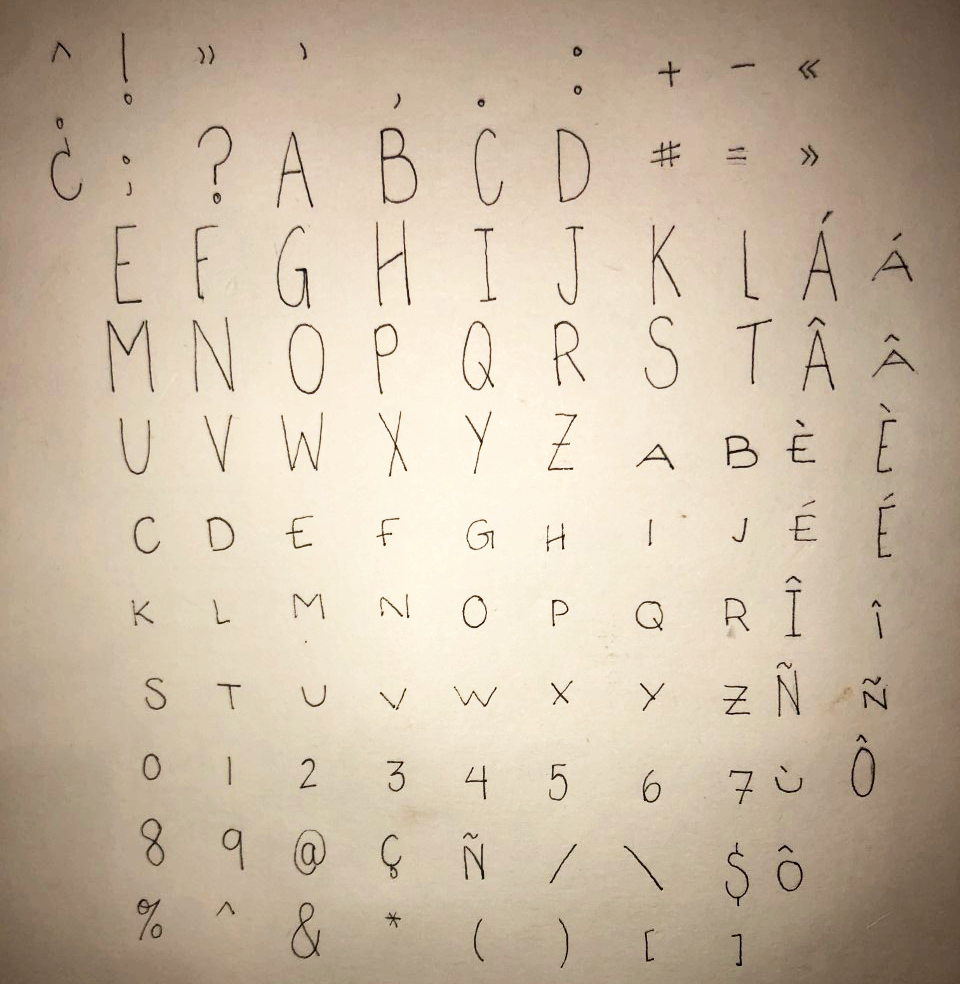 ^ ! » ’ , . : + - «
¿ ; ? A B C D # = »
E F G H I J K L Á Á
M N O P Q R S T Â Â
U V W X Y Z A B È È
C D E F G H I J É É
K L M N O P Q R Î Î
S T U V W X Y Z Ñ Ñ
0 1 2 3 4 5 6 7 Ù Ô
8 9 @ Ç Ñ / \ $ Ô
% ^ & * ( ) [ ]